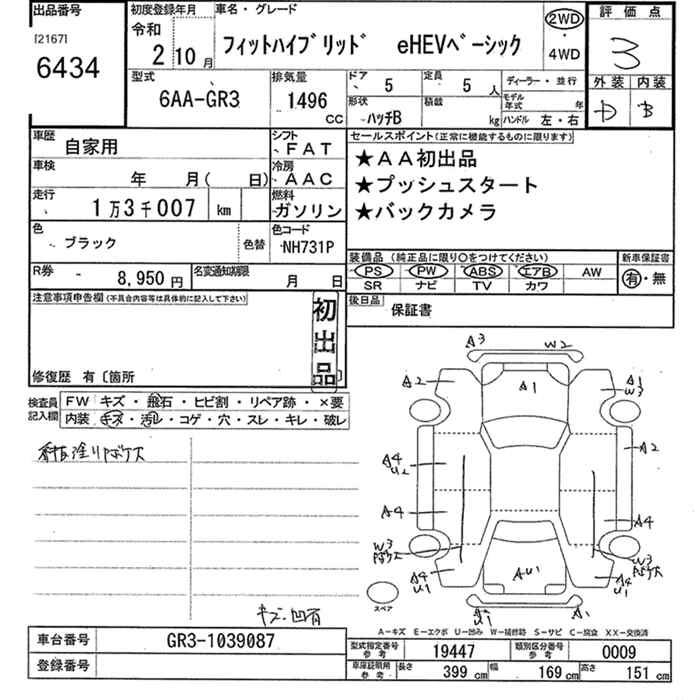 出品番号 初度登録年月 車名・グレード 評価点
[2167] 令和
6434 2 10月 フィットハイブリッド eHEVベーシック 2WD ・ 4WD 3
型式 排気量 ドア 定員 ディーラー・並行 外装 内装
6AA-GR3 1496 CC 5 5人 モデル年式 年 D B
形状 ハッチB 積載 kg ハンドル 左・右
車歴 自家用 シフト FAT セールスポイント(正常に機能するものに限ります)
車検 年 月( 日) 冷房 AAC ★AA初出品
走行 1万3千007 km 燃料 ガソリン ★プッシュスタート
★バックカメラ
色 ブラック 色替 色コード NH731P
装備品 (純正品に限り○をつけてください) 新車保証書
R券 8,950円 名変通知期限 月 日 PS PW ABS エアB AW 有・無
SR ナビ TV カワ
注意事項申告欄(不具合内容等は具体的に記入して下さい) 初出品 後日品 保証書
修復歴 有〔箇所 〕
検査員記入欄 FW キズ・飛石・ヒビ割・リペア跡・×要
内装 キズ・汚レ・コゲ・穴・スレ・キレ・破レ
A3 W2
A2 A1 A1 W3
A4 U2 A2
A4 A4
W3 W3
A4 U1 AU1 A4 U1
スペア A1 U1 A1
キズ・凹有
A-キズ E-エクボ U-凹み W-補修跡 S-サビ C-腐食 XX-交換済
車台番号 GR3-1039087 型式指定番号 参考 19447 類別区分番号 参考 0009
登録番号 車庫証明用 参考 長さ 399 cm 幅 169 cm 高さ 151 cm